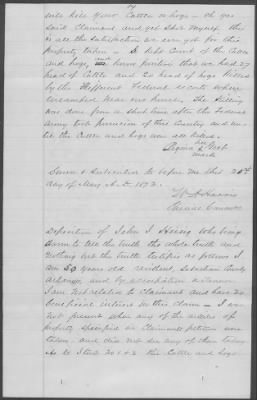 will kill your Cattle or hogs - oh yes
said Claimant and get shot myself. this
is all the satisfaction we ever got for this
property taken - I kept Count of the Cattle
and hogs, and know positive that we had 27
head of Cattle and 20 head of hogs killed
by the different Federal scouts where
encamped near our house. The killing
was done from a short time after the Federal
army took possession of this Country and un-
til the Cattle and hogs were all killed.
Regina her X
mark
Sworn & Subscribed to before me this
day of May A.D. 1873.
Deposition of John I who being
sworn to tell the truth the whole truth and
nothing but the truth testifies as follows I
am 59 years old resident, Sebastian County
Arkansas, and by occupation a Farmer
I am not related to Claimant and have no
beneficial interest in this claim - I am
not present when any of the articles of
property specified in Claimants petition were
taken - and did not see any of them taken
As to Items No 1 & 2 the Cattle and hogs